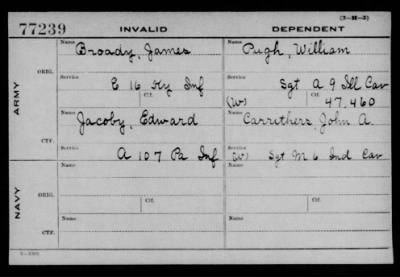 (3-H-5)
77239 INVALID DEPENDENT
Name Name
Broady, James Pugh, William
ORIG. Service Ctf. Service Ctf.
E 16 Ky Inf Sgt A 9 Ill Cav
(W) 47,460
ARMY
Name Name
Jacoby, Edward Carrithers, John A.
CTF. Service Service
A 107 Pa Inf (W) Sgt M 6 Ind Cav
Name Name
NAVY
ORIG. Ctf. Ctf.
Name Name
CTF.